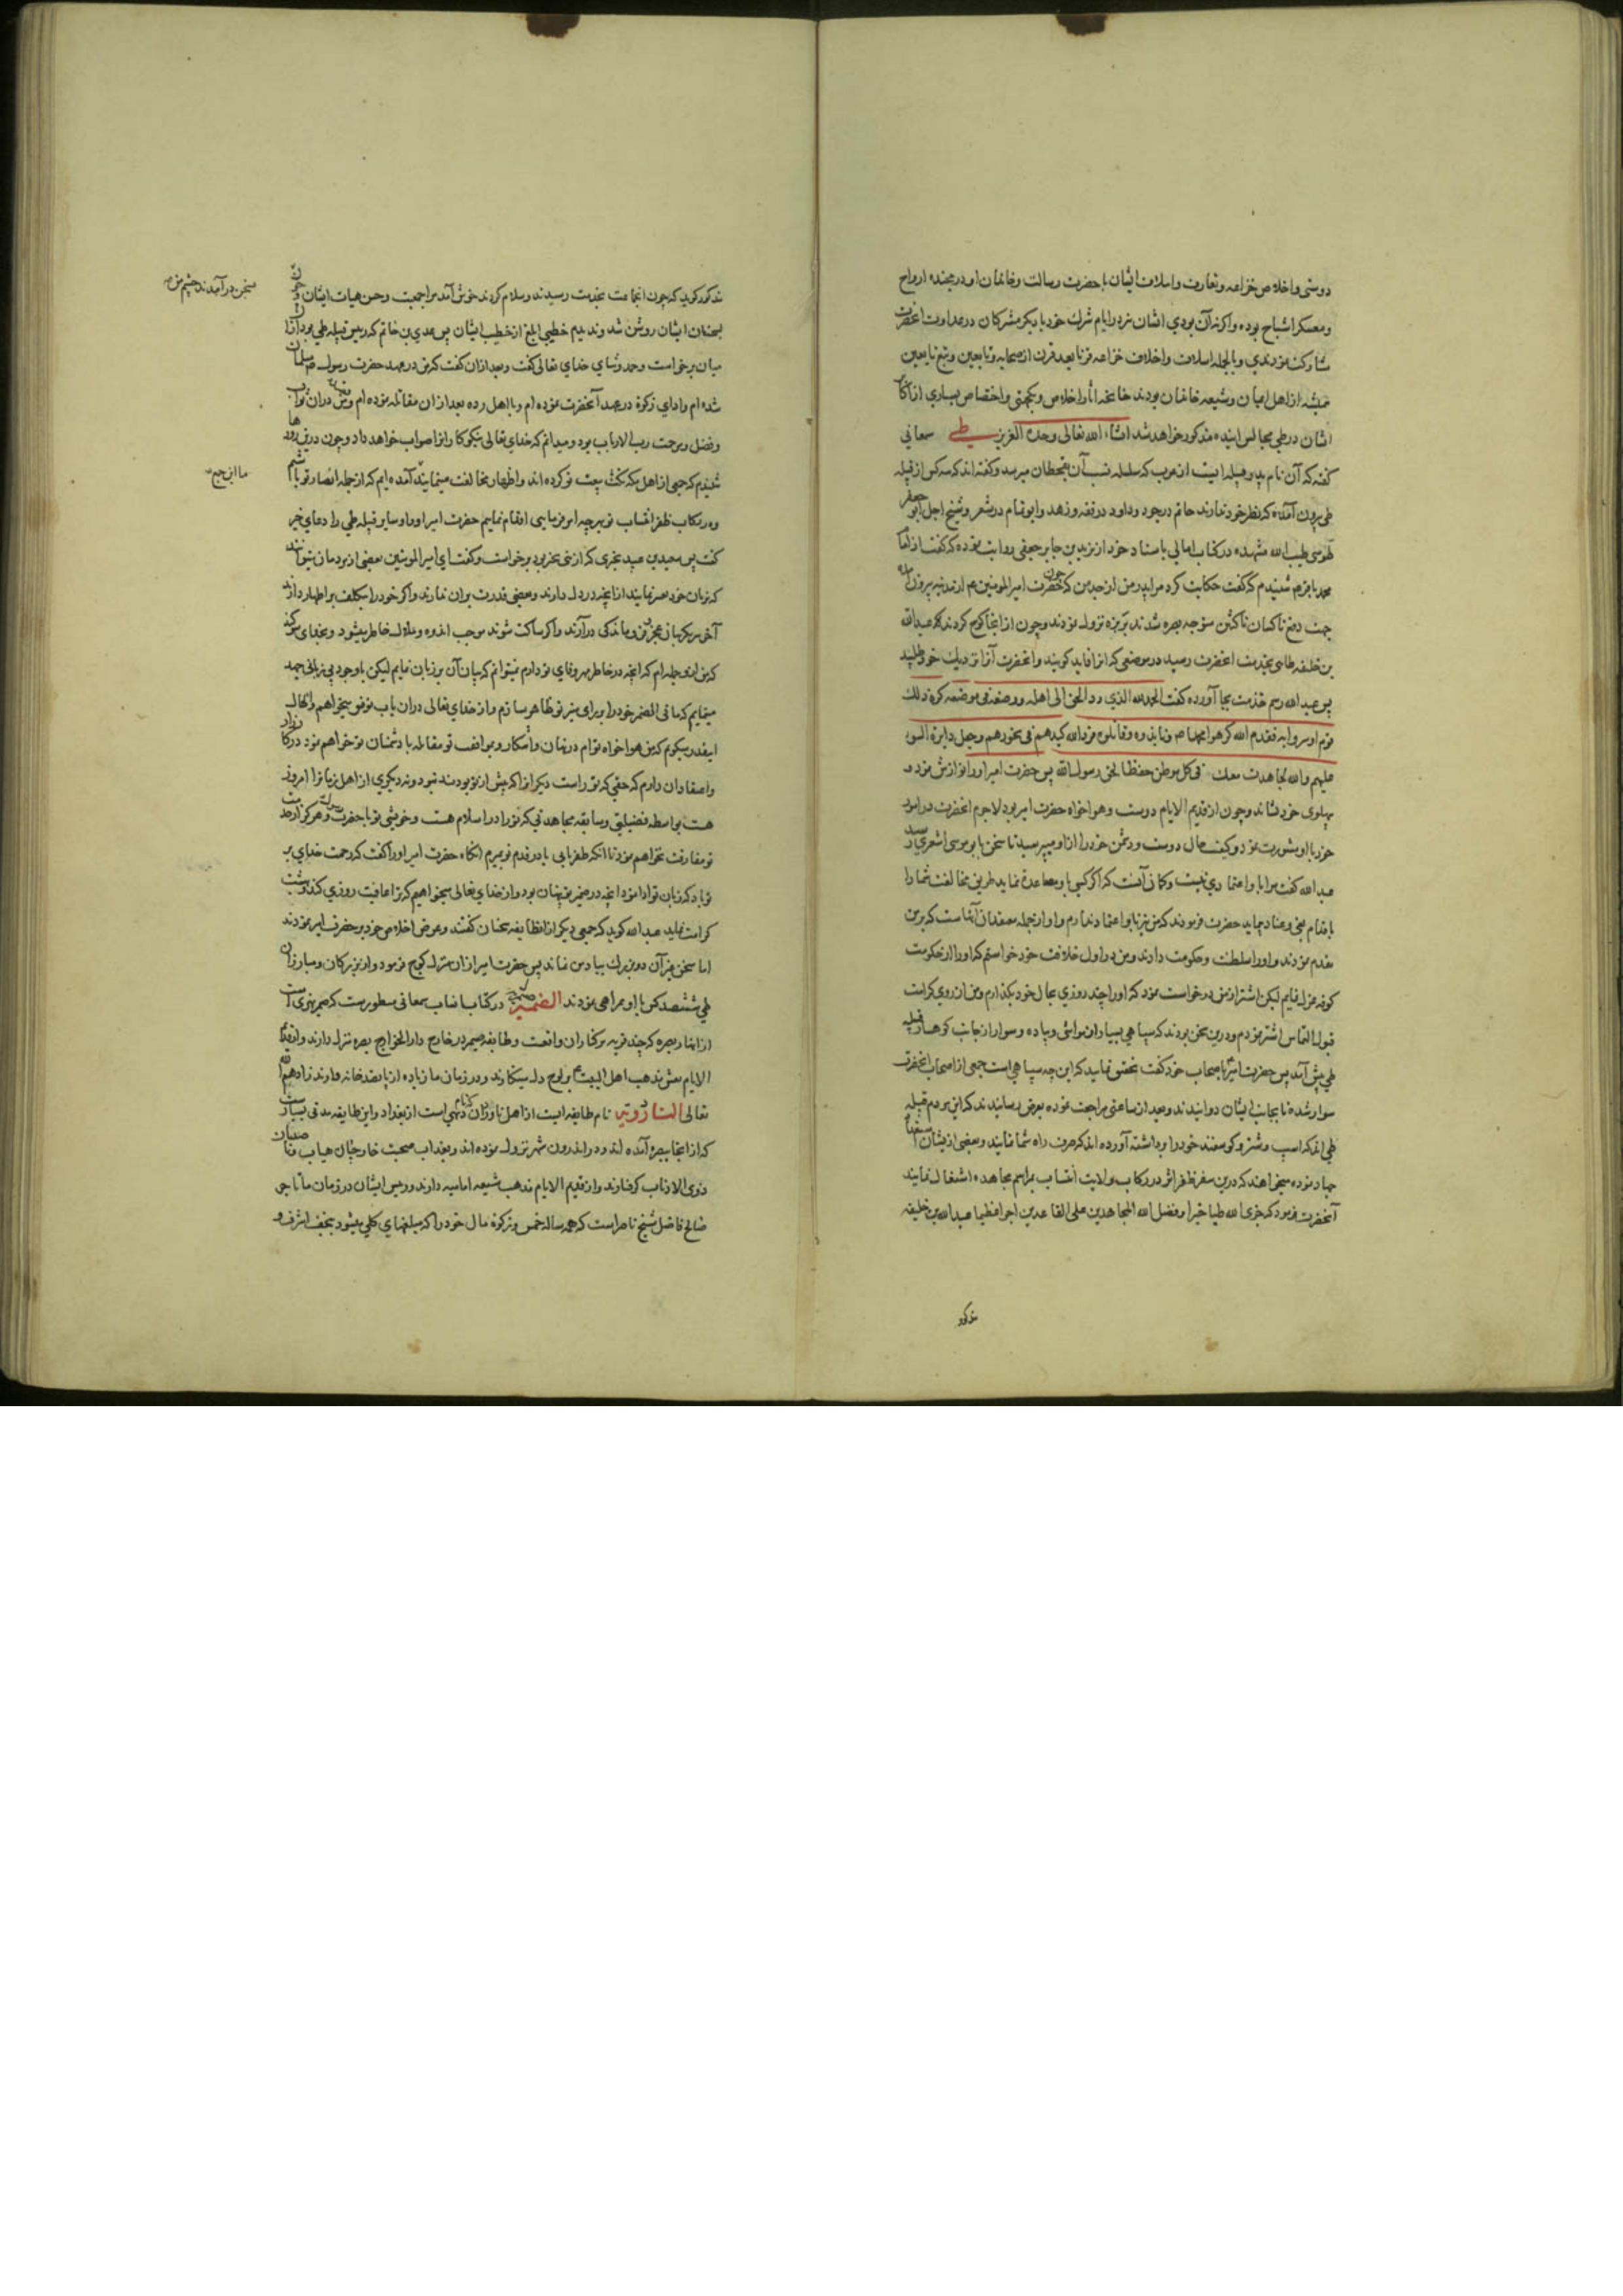 دوستی و اخلاص خزاعه و تعارف و اسلاف ایشان با حضرت رسالت و خاندان او در مجنده ارواح
و معسکر اشباح بوده و اگر نه آن بودی ایشان نیز در ایام شرک خود با دیگر مشرکان در عداوت آنحضرت
مشارکت نمودندی و بالجمله اسلاف و اخلاف خزاعه قرنا بعد قرن از صحابه و تابعین و تبع تابعین
همیشه از اهل ایمان و شیعه خاندان بودند چنانچه آثار اخلاص و یکجهتی و اختصاص بسیاری از اکابر
ایشان در طی مجالس آینده مذکور خواهد شد انشاء الله تعالی وحده العزیز طی سمعانی
گفته که آن نام پدر قبیله ایست از عرب که سلسله نسب آن بقحطان میرسد و گفته اند که سه کس از قبیله
طی بیرون آمده که نظیر خود ندارند حاتم در جود و داود در فقه و زهد و ابو تمام در شعر و شیخ اجل ابو جعفر
طوسی طیب الله مشهده در کتاب امالی باسناد خود از زید بن جابر جعفی روایت نموده که گفت از امام
محمد باقر عم شنیدم که گفت حکایت کرد مرا پدر من از جد من که چون حضرت امیر المومنین عم از مدینه بیرون آمده
جهت دفع ناکسان ناکثین متوجه بصره شدند بربذه نزول نمودند و چون از آنجا کوچ کردند عبدالله
بن خلیفه طایی بخدمت آنحضرت رسید در موضعی که آنرا فاید گویند و آنحضرت او را نزدیک خود طلبید
پس عبدالله رسم خدمت بجا آورده گفت الحمد لله الذی رد الحق الی اهله و وضعه فی موضعه کره ذلک
قوم او سروا به فقد والله کرهوا محمدا صم و نابذوه و قاتلوه فرد الله کیدهم فی نحورهم و جعل دایرة السوء
علیهم والله لنجاهدن معک فی کل موطن حفظا لحق رسول الله پس حضرت امیر او را نوازش نمود و
پهلوی خود نشاند و چون از قدیم الایام دوست و هواخواه حضرت امیر بود لاجرم آنحضرت در امور
خود با او مشورت نمود و کیفیت حال دوست و دشمن خود را از او میپرسید تا سخن بابو موسی اشعری رسید
عبد الله گفت مرا باو اعتمادی نیست و گمان آنست که اگر کسی باو مساعدة نماید طریق مخالفت شما را
باقدام بغی و عناد پیماید حضرت فرمودند که من نیز باو اعتماد ندارم و او از جمله معتقدان آنهاست که بر من
مقدم نمودند و او را سلطنت و حکومت دادند و من در اول خلافت خود خواستم که او را از حکومت
کوفه معزول نمایم لیکن اشتر از من درخواست نمود که او را چند روزی بحال خود بگذارم و من از روی کراهت
قبول التماس اشتر نمودم و درین سخن بودند که سپاهی بسیار از مواشی و پیاده و سوار از جانب کوهسار قبیله
طی پیش آمد پس حضرت امیر باصحاب خود گفت تحقیق نمایید که این چه سپاهی است جمعی از اصحاب آنحضرت
سوار شده تا بجانب ایشان دوانیدند و بعد از ساعتی مراجعت نموده بعرض رسانیدند که این مردم قبیله
طی اند که اسپ و شتر و گوسفند خود را برداشته آورده اند که صرف راه شما نمایند و بعضی از ایشان استعداد
جهاد نموده میخواهند که درین سفر ظفر اثر در رکاب ولایت انتساب بمراسم مجاهده اشتغال نمایند
آنحضرت فرمود که جزی الله طیا خیرا و فضل الله المجاهدین علی القاعدین اجرا عظیما عبدالله بن خلیفه
مذکور
مذکور گوید که چون آنجماعت بخدمت رسیدند و سلام کردند خوش آمد مرا جمعیت و حسن هیات ایشان و چون
سخن در آمدند چشم من
بسخنان ایشان روشن شد و ندیدیم خطیبی ابلغ از خطیب ایشان پس عدی بن حاتم که رییس قبیله طی بود از آن
میان برخاست و حمد و ثنای خدای تعالی گفت و بعد از آن گفت که من در عهد حضرت رسول صم مسلمان
شده ام و ادای زکوة در عهد آنحضرت نموده ام و با اهل رده بعد از آن مقاتله نموده ام و غرض من در آن ثواب
و فضل و رحمت رب الارباب بود و میدانم که خدای تعالی نیکوکار را ثواب خواهد داد و چون درین روزها
شنیدم که جمعی از اهل مکه نکث بیعت تو کرده اند و اظهار مخالفت مینمایند آمده ایم که از جمله انصار تو باشیم
ما این جمع
و در رکاب ظفر انتساب تو بهر چه امر فرمایی اقدام نماییم حضرت امیر او را و سایر قبیله طی را دعای خیر
گفت پس سعید بن عبید بحتری که از بنی بحتر بود برخواست و گفت ای امیر المومنین بعضی از مردمان میتوانند
که بزبان خود تعبیر نمایند از آنچه در دل دارند و بعضی قدرت بر آن ندارند و اگر خود را بتکلف بر اظهار دارند
آخر سر بگریبان عجز و درماندگی درآرند و اگر ساکت شوند موجب اندوه و ملال خاطر میشود و بخدای سوگند
که من از آنجمله ام که آنچه در خاطر مهر و وفای تو دارم نمیتوانم که بیان آن بر زبان نمایم لیکن با وجود بی زبانی جهد
مینمایم که ما فی الضمیر خود را برای منیر تو ظاهر سازم و از خدای تعالی در آن باب توفیق میخواهم و بالجمله
اینقدر میگویم که من هواخواه توام در نهان و آشکار و بموافقت تو مقاتله با دشمنان تو خواهم نمود در کارزار
و اعتقاد آن دارم که حقی که تو راست دیگر آنرا که پیش از تو بودند نبود و نه دیگری از اهل زمان را امروز
هست بواسطه فضیلتی و سابقه مجاهدتی که تو را در اسلام هست و خویشی تو با حضرت رسول و هرگز از خدمت
تو مفارقت نخواهم نمود تا آنکه ظفر یابی یا در قدم تو بمیرم آنگاه حضرت امیر او را گفت که رحمت خدای بر
تو باد که زبان تو ادا نمود آنچه در ضمیر تو پنهان بود و از خدای تعالی میخواهیم که ترا عافیت روزی کند و بهشت
کرامت نماید عبدالله گوید که جمعی دیگر از آنطایفه سخنان گفتند و عرض اخلاص خود بر حضرت امیر نمودند
اما سخن غیر آن دو بزرگ بیاد من نماند پس حضرت امیر از آن منزل کوچ فرمود و از بزرگان و مبارزان
طی ششصد کس با او همراهی نمودند الضمیر در کتاب انساب سمعانی مسطورست که ضمیر نهری است
از انهار بصره که چند قریه بر کنار آن واقعست و طایفه ضمیر در خارج دار الخراج بصره منزل دارند و از قدیم
الایام نقش مذهب اهل البیت بر لوح دل مینگارند و در زمان ما زیاده از پانصد خانه وارند زادهم الله
تعالی الناروتیه نام طایفه ایست از اهل ناوران که نام دهی است از بغداد و این طایفه مدتی بسیارست
که از آنجا ببصره آمده اند و در اندرون شهر نزول نموده اند و بعذاب صحبت خارجیان
ذوی الاذناب گرفتارند و از قدیم الایام مذهب شیعه امامیه دارند و رییس ایشان در زمان ما تاجر
صالح فاضل شیخ ناصر است که همه ساله خمس و زکوة مال خود را که مبلغهای کلی میشود بنجف اشرف و